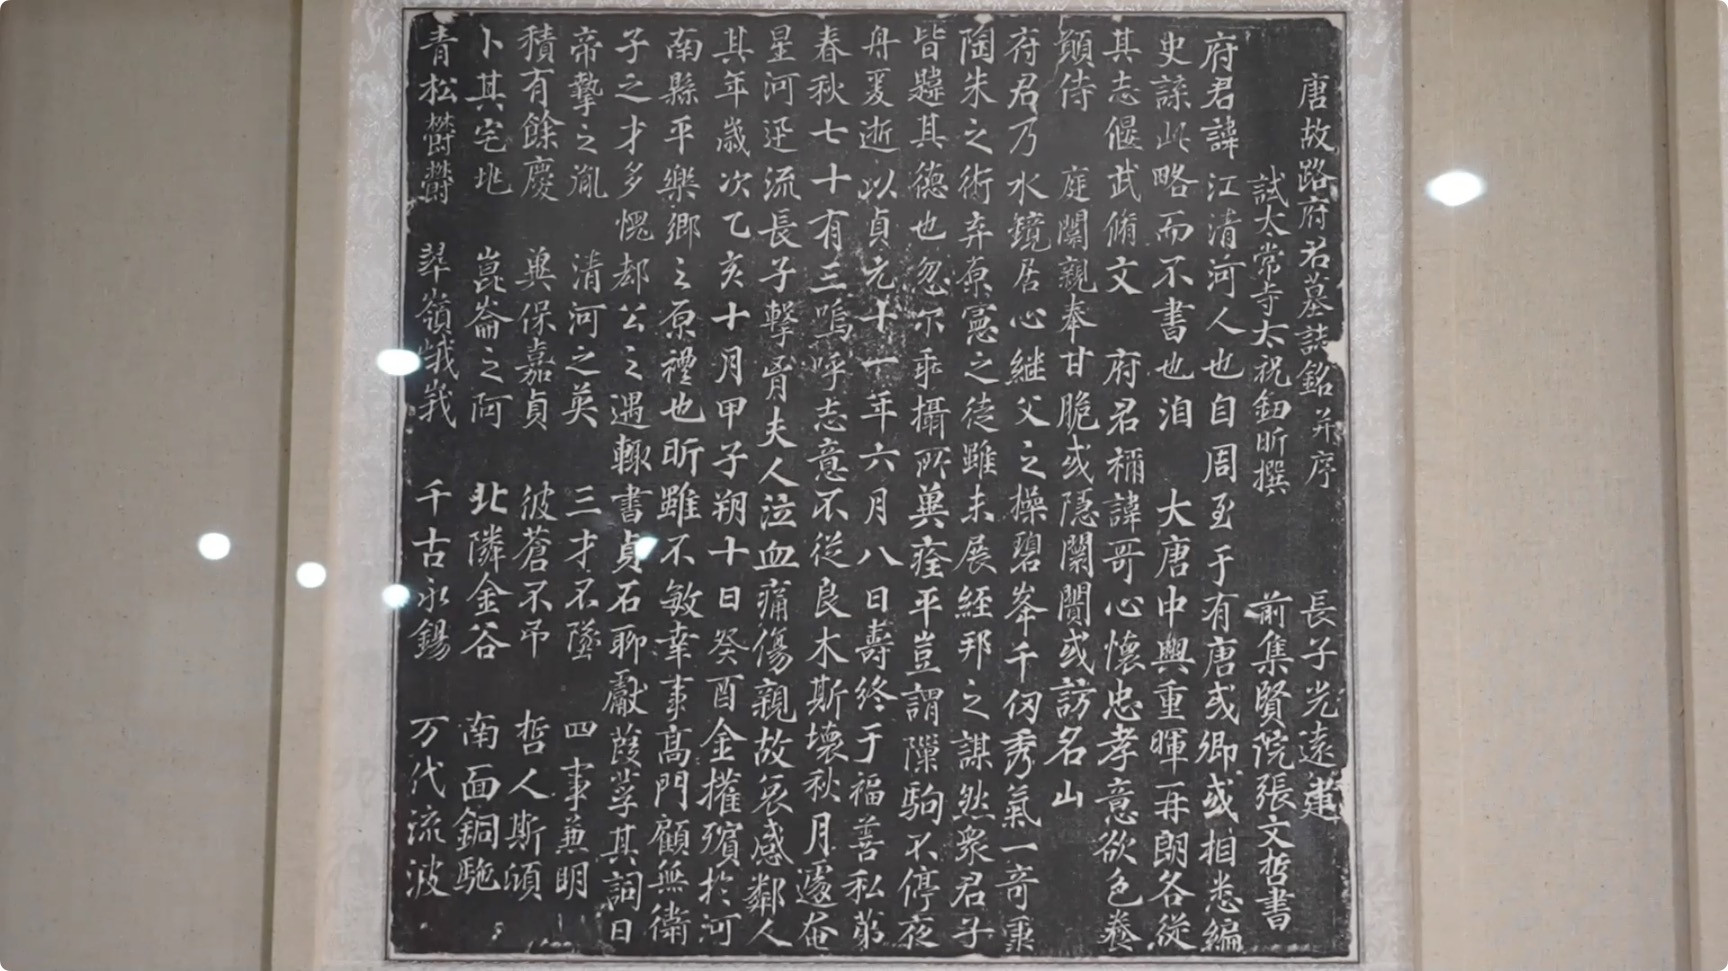 唐故路府君墓誌銘并序 長子光遠建
試太常寺太祝鈕昕撰 前集賢院張文哲書
府君諱江清河人也自周至于有唐或卿或相悉編
史諜此略而不書也洎 大唐中興重暉再朗各從
其志偃武脩文 府君禰諱哥心懷忠孝意欲色養
顛侍 庭闈親奉甘脆或隱闤闠或訪名山
府君乃水鏡居心継父之操碧岑千仞秀氣一奇稟
陶朱之術弃原憲之徒雖未展經邦之謀然衆君子
皆韙其德也忽尒乖攝所冀痊平豈謂隟駒不停夜
舟夏逝以貞元十一年六月八日壽終于福善私苐
春秋七十有三嗚呼志意不從良木斯壞秋月遽奄
星河迅流長子擊胷夫人泣血痛傷親故哀感鄰人
其年歲次乙亥十月甲子朔十日癸酉金擁殯於河
南縣平樂鄉之原禮也昕雖不敏幸事高門顧無衛
子之才多愧郄公之遇輙書貞石聊獻葭莩其詞曰
帝摯之胤 清河之英 三才不墜 四事兼明
積有餘慶 與保嘉貞 彼蒼不吊 哲人斯傾
卜其宅地 崑崙之阿 北隣金谷 南面銅駞
青松欝欝 翠嶺峩峩 千古永錫 万代流波